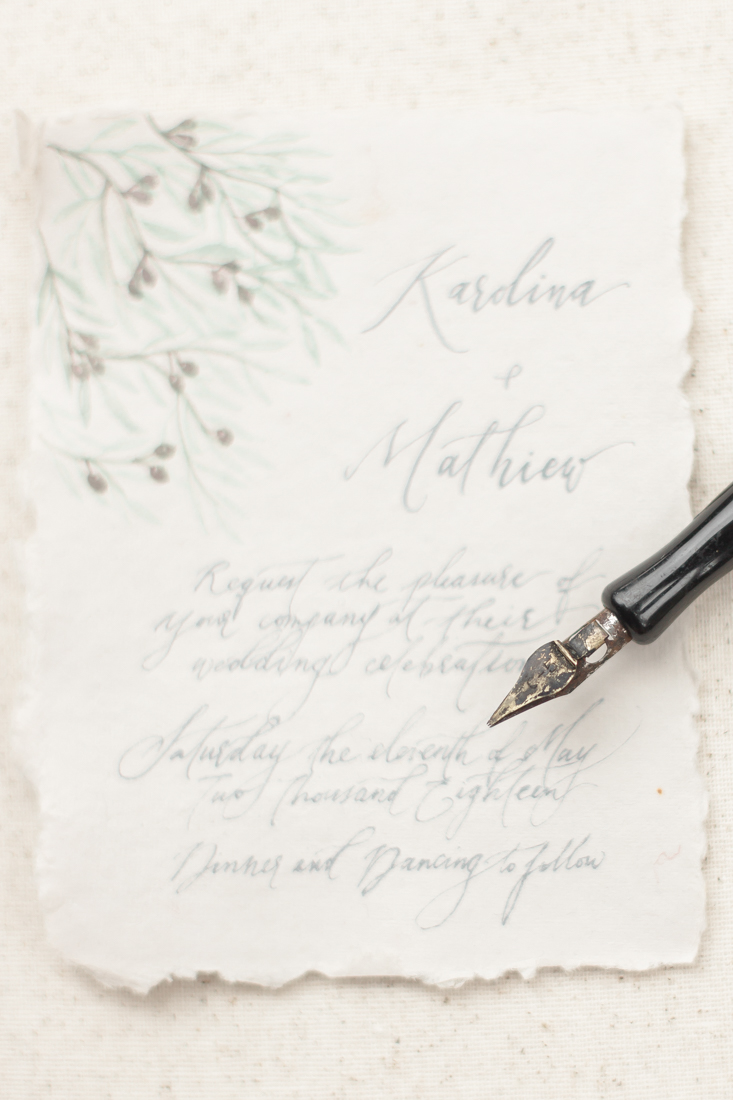 Karolina
&
Mathiew
Request the pleasure of
your company at their
wedding celebration
Saturday the eleventh of May
Two Thousand Eighteen
Dinner and Dancing to follow